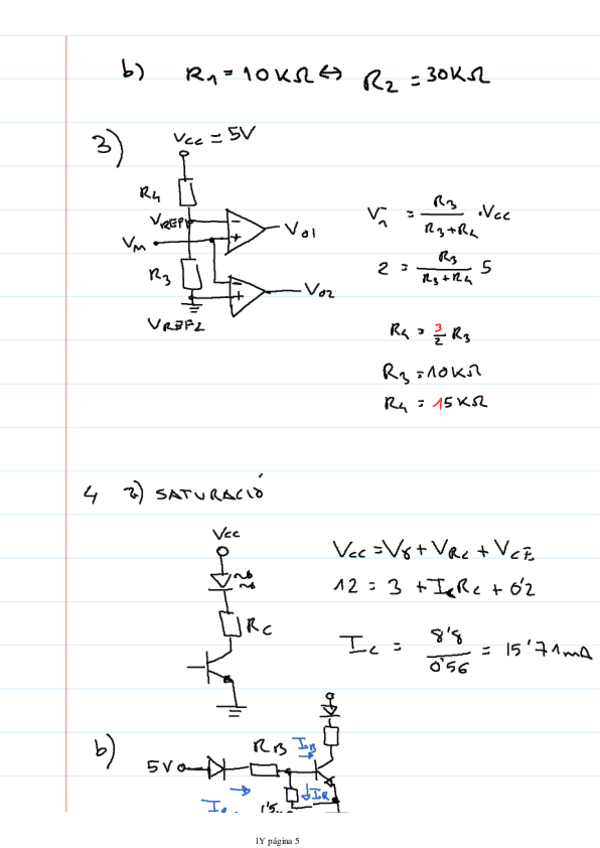 b) R1 = 10KΩ ↔ R2 = 30KΩ
3)
Vcc = 5V
R4
VREF1
Vo1
VM
R3
Vo2
VREF2
V1⁻ = R3/(R3+R4) · Vcc
2 = R3/(R3+R4) 5
R4 = 3/2 R3
R3 = 10KΩ
R4 = 15KΩ
4 a) SATURACIÓ
Vcc
RC
Vcc = Vγ + VRC + VCE
12 = 3 + IC RC + 0'2
IC = 8'8/0'56 = 15'71mA
b)
5V
RB
IB
IR
1'5
1Y página 5